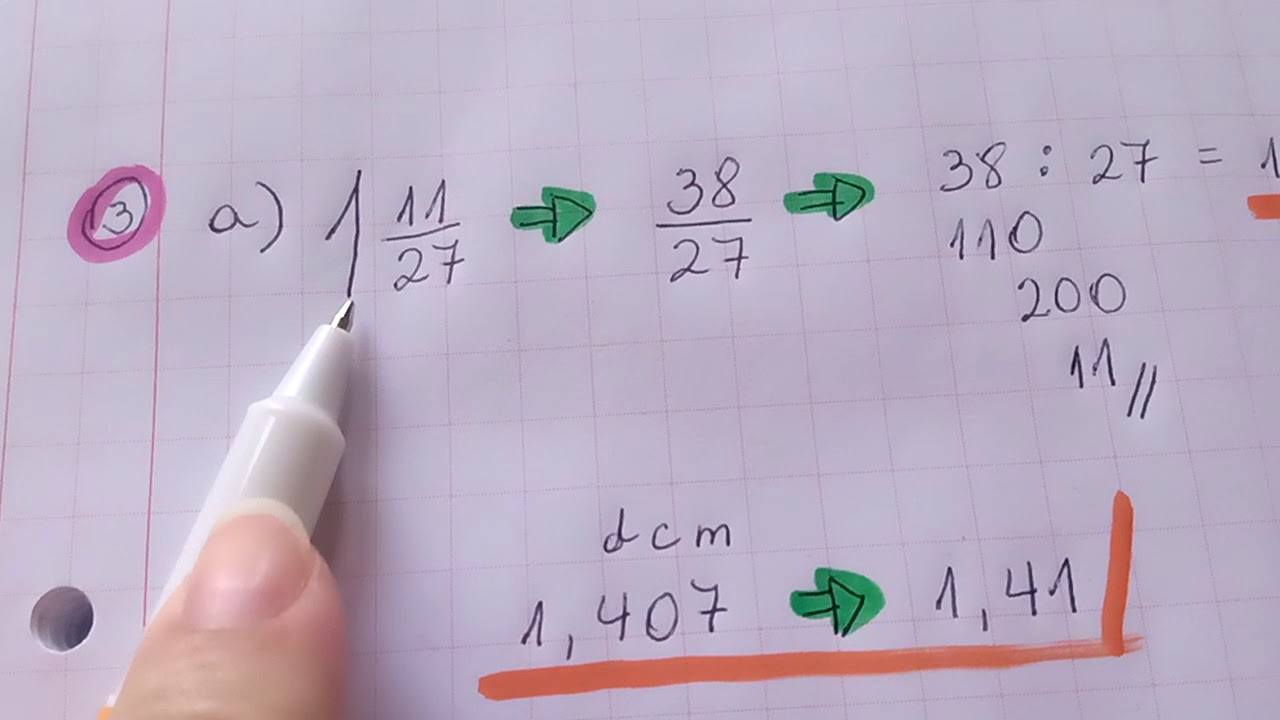 3 a) 1 11/27 → 38/27 → 38 : 27 = 1
110
200
11 //
d c m
1,407 → 1,41